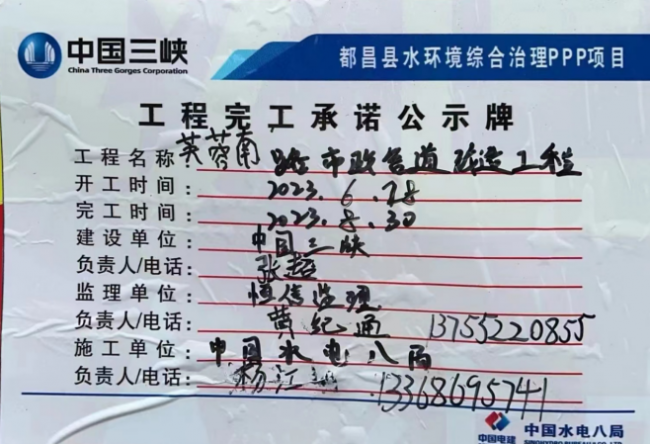 中国三峡
China Three Gorges Corporation
都昌县水环境综合治理PPP项目
工程完工承诺公示牌
工程名称：芙蓉南路市政管道改造工程
开工时间：2023.6.28
完工时间：2023.8.30
建设单位：中国三峡
负责人/电话：张超
监理单位：恒信监理
负责人/电话：黄纪通 13755220855
施工单位：中国水电八局
负责人/电话：杨江 13368695741
中国电建 中国水电八局